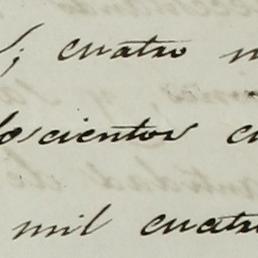 ; cuatro
oscientos c
mil cuatr